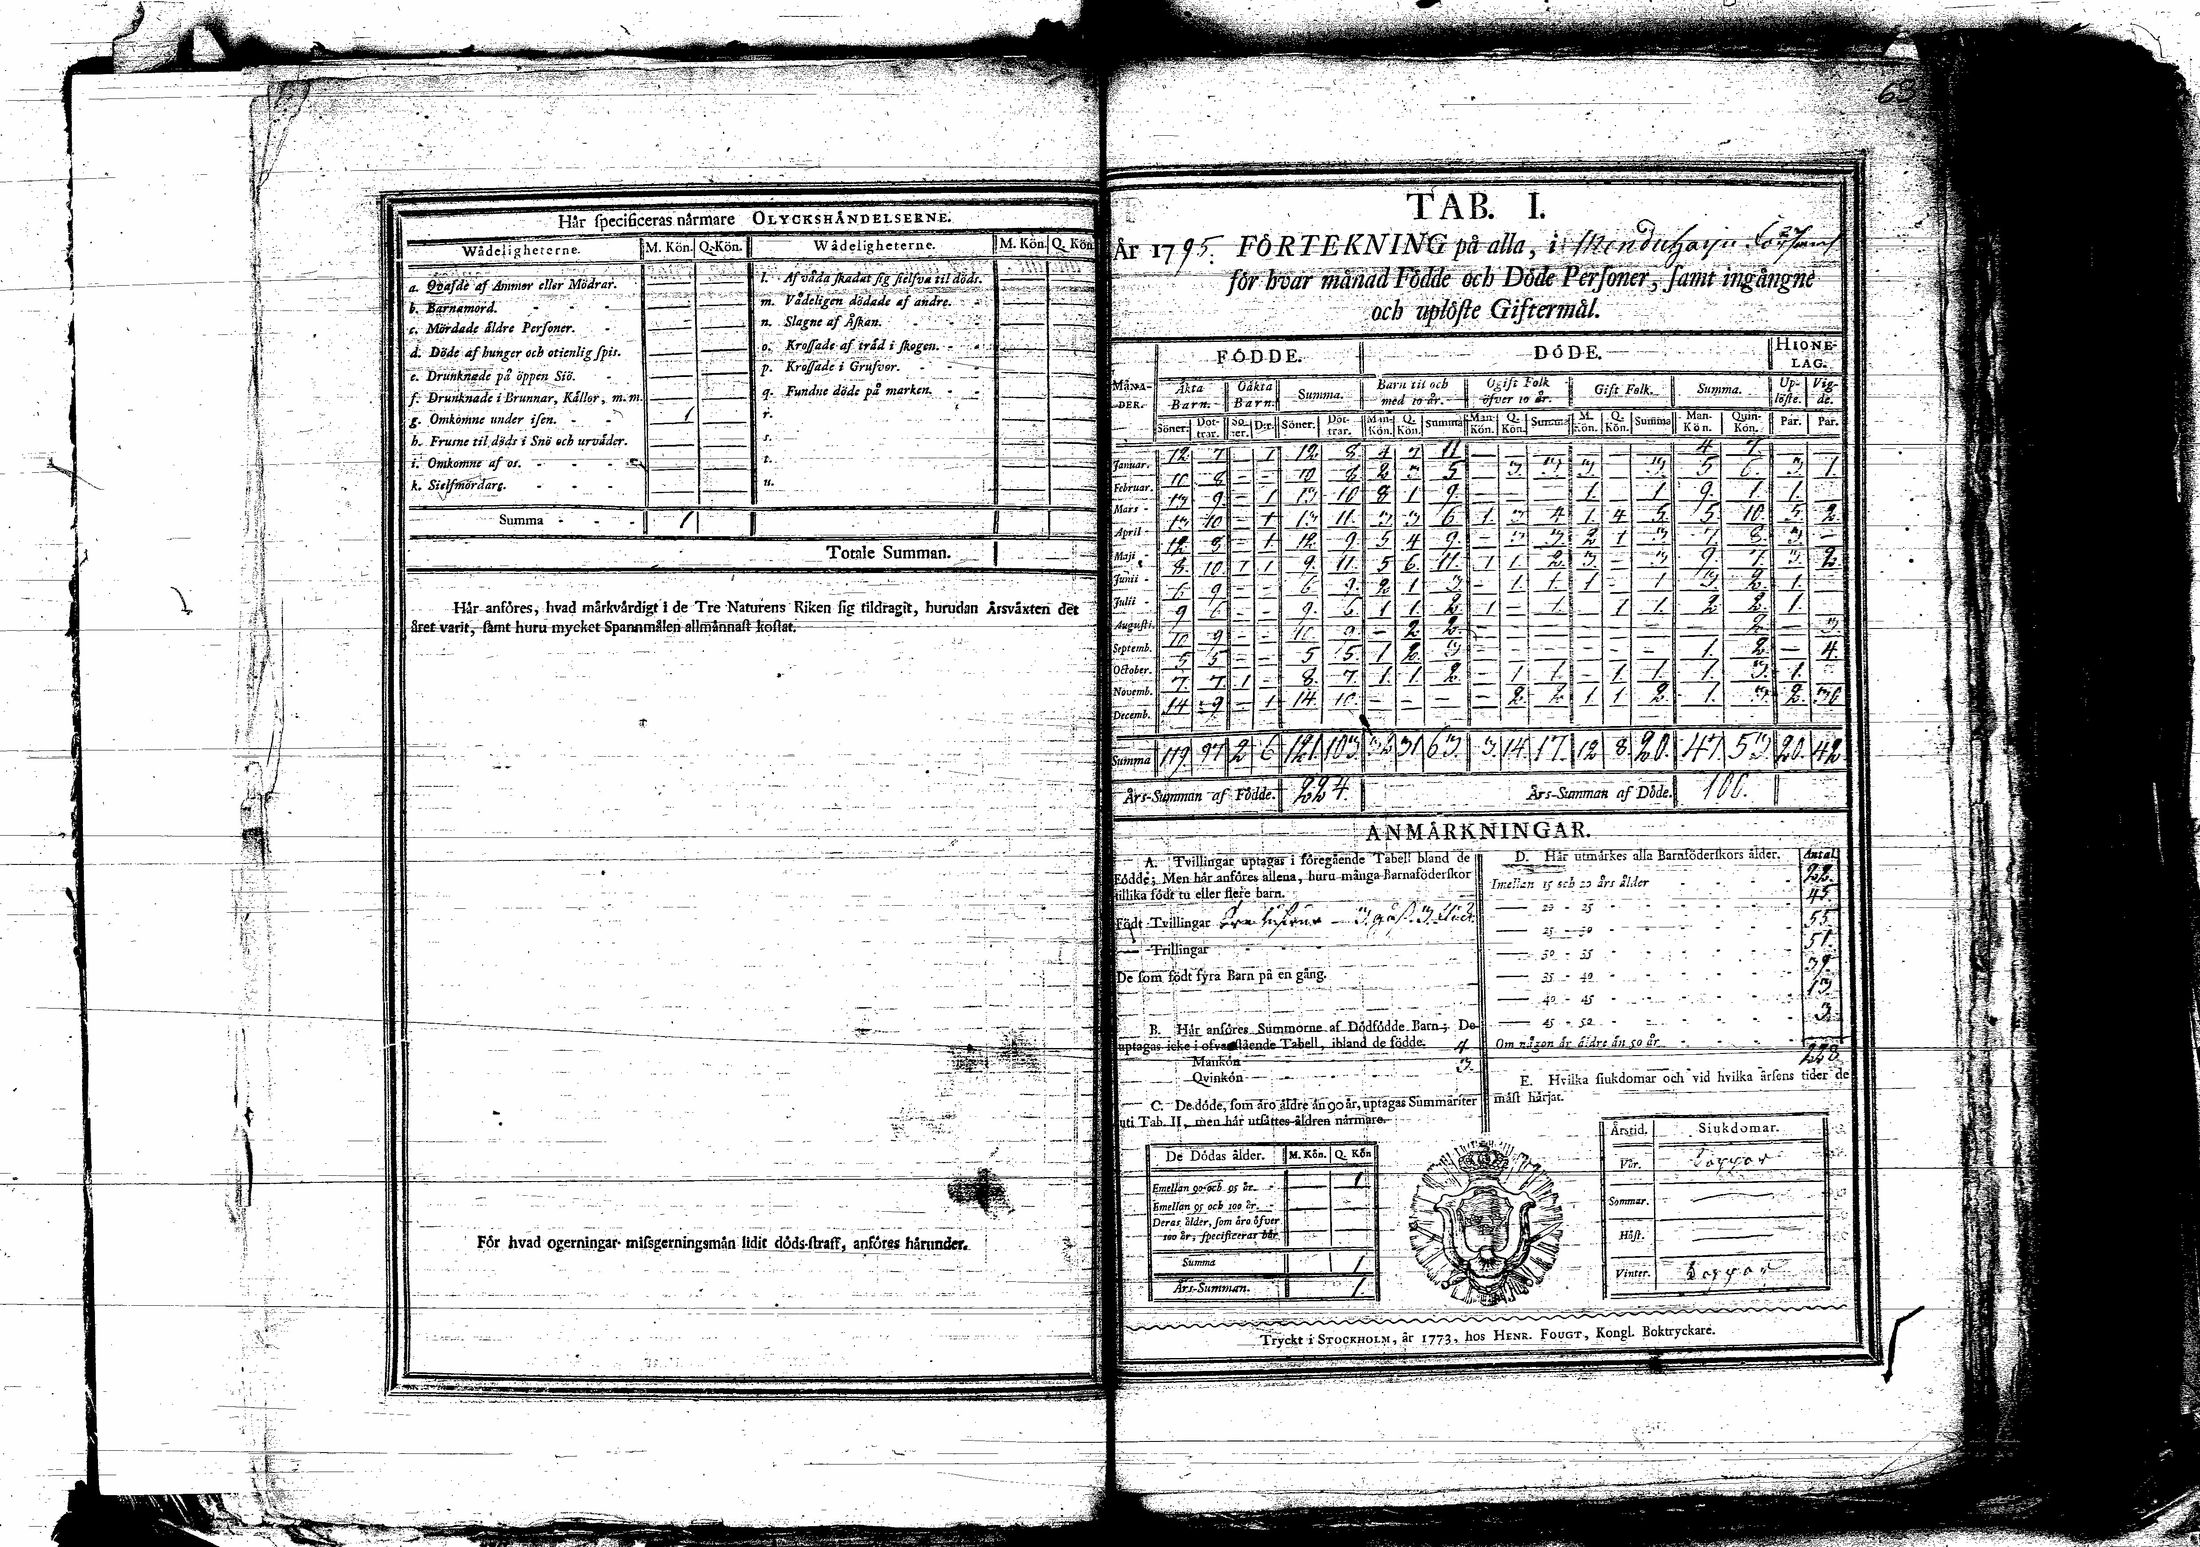 Hår specificeras nårmare OLYCKSHÅNDELSERNE.
Wådeligheterne. M. Kön. Q. Kön. Wådeligheterne. M. Kön. Q. Kön
a. Qvafde af Ammor eller Mödrar.
b. Barnamord.
c. Mördade åldre Personer.
d. Döde af hunger och otienlig spis.
e. Drunknade på öppen Siö.
f. Drunknade i Brunnar, Kållor, m. m.
g. Omkomne under isen. 1
h. Frusne til döds i Snö och urvåder.
i. Omkomne af os.
k. Sielfmördare.
l. Af våda skadat sig sielfva til döds.
m. Vådeligen dödade af andre.
n. Slagne af Åskan.
o. Krossade af tråd i skogen.
p. Krossade i Grufvor.
q. Fundne döde på marken.
r.
s.
t.
u.
Summa 1
Totale Summan.
Hår anföres, hvad mårkvårdigt i de Tre Naturens Riken sig tildragit, hurudan Årsvåxten det
året varit, samt huru mycket Spannmålen allmånnast kostat.
För hvad ogerningar missgerningsmån lidit döds-straff, anföres hårunder.
63
TAB. I.
År 1795. FÖRTEKNING på alla, i
för hvar månad Födde och Döde Personer, samt ingångne
och uplöste Giftermål.
FÖDDE. DÖDE. HIONE-
LAG.
MÅNA-
DER. Åkta
Barn. Oåkta
Barn. Summa. Barn til och
med 10 år. Ogift Folk
öfver 10 år. Gift Folk. Summa. Up-
löste. Vig-
de.
Söner. Döt-
trar. Sö-
ner. D:r. Söner. Döt-
trar. Man-
Kön. Q.
Kön. Summa Man-
Kön. Q.
Kön. Summa M.
Kön. Q.
Kön. Summa Man-
Kön. Quin-
Kön. Par. Par.
Januar. 12 7 – 1 12 8 4 7 11 – – – – – – 4 7
Februar. 10 8 – – 10 8 2 3 5 – 3 3 3 – 3 5 6 3 1
Mars 13 9 – 1 13 10 8 1 9 – – – 1 – 1 9 1 1
April 13 10 – 1 13 11 3 3 6 1 3 4 1 4 5 5 10 5 2
Maji 12 8 – 1 12 9 5 4 9 – 3 3 2 1 3 7 8 3 –
Junii 8 10 1 1 9 11 5 6 11 1 1 2 3 – 3 9 7 3 2
Julii 6 9 – – 6 9 2 1 3 – 1 1 1 – 1 3 2 1
Augusti. 9 6 – – 9 6 1 1 2 1 – 1 – 1 1 2 2 1
Septemb. 10 9 – – 10 9 – 2 2 – – – – – – – 2 – 3
October. 5 5 – – 5 5 1 2 3 – – – – – – 1 2 – 4
Novemb. 7 7 1 – 8 7 1 1 2 – 1 1 – 1 1 1 3 1
Decemb. 14 9 – 1 14 10 – – – – 2 2 1 1 2 1 3 2 30
Summa 119 97 2 6 121 103 32 31 63 3 14 17 12 8 20 47 53 20 42
Års-Summan af Födde. 224. Års-Summan af Döde. 100.
ANMÅRKNINGAR.
A. Tvillingar uptagas i föregående Tabell bland de
Födde; Men hår anföres allena, huru många Barnaföderskor
tillika födt tu eller flere barn.
Födt Tvillingar
— Trillingar
De som födt fyra Barn på en gång.
B. Hår anföres Summorne af Dödfödde Barn; De
uptagas icke i ofvanstående Tabell, ibland de födde.
Mankön 4
Qvinkön 3.
C. De döde, som åro åldre ån 90 år, uptagas Summariter
uti Tab. II, men hår utsåttes åldren nårmare.
De Dödas ålder. M. Kön. Q. Kön
Emellan 90 och 95 år. 1
Emellan 95 och 100 år.
Deras ålder, som åro öfver
100 år, specificeras hår
Summa 1
Års-Summan. 1.
D. Hår utmårkes alla Barnföderskors ålder. Antal
Imellan 15 och 20 års ålder 22.
— 20 - 25 45
— 25 - 30 55
— 30 - 35 51
— 35 - 40 39
— 40 - 45 13
— 45 - 50 3
Om någon år åldre ån 50 år
228
E. Hvilka siukdomar och vid hvilka årsens tider de
måst hårjat.
Årstid. Siukdomar.
Vår.
Sommar.
Höst.
Vinter.
Tryckt i STOCKHOLM, år 1773, hos HENR. FOUGT, Kongl. Boktryckare.